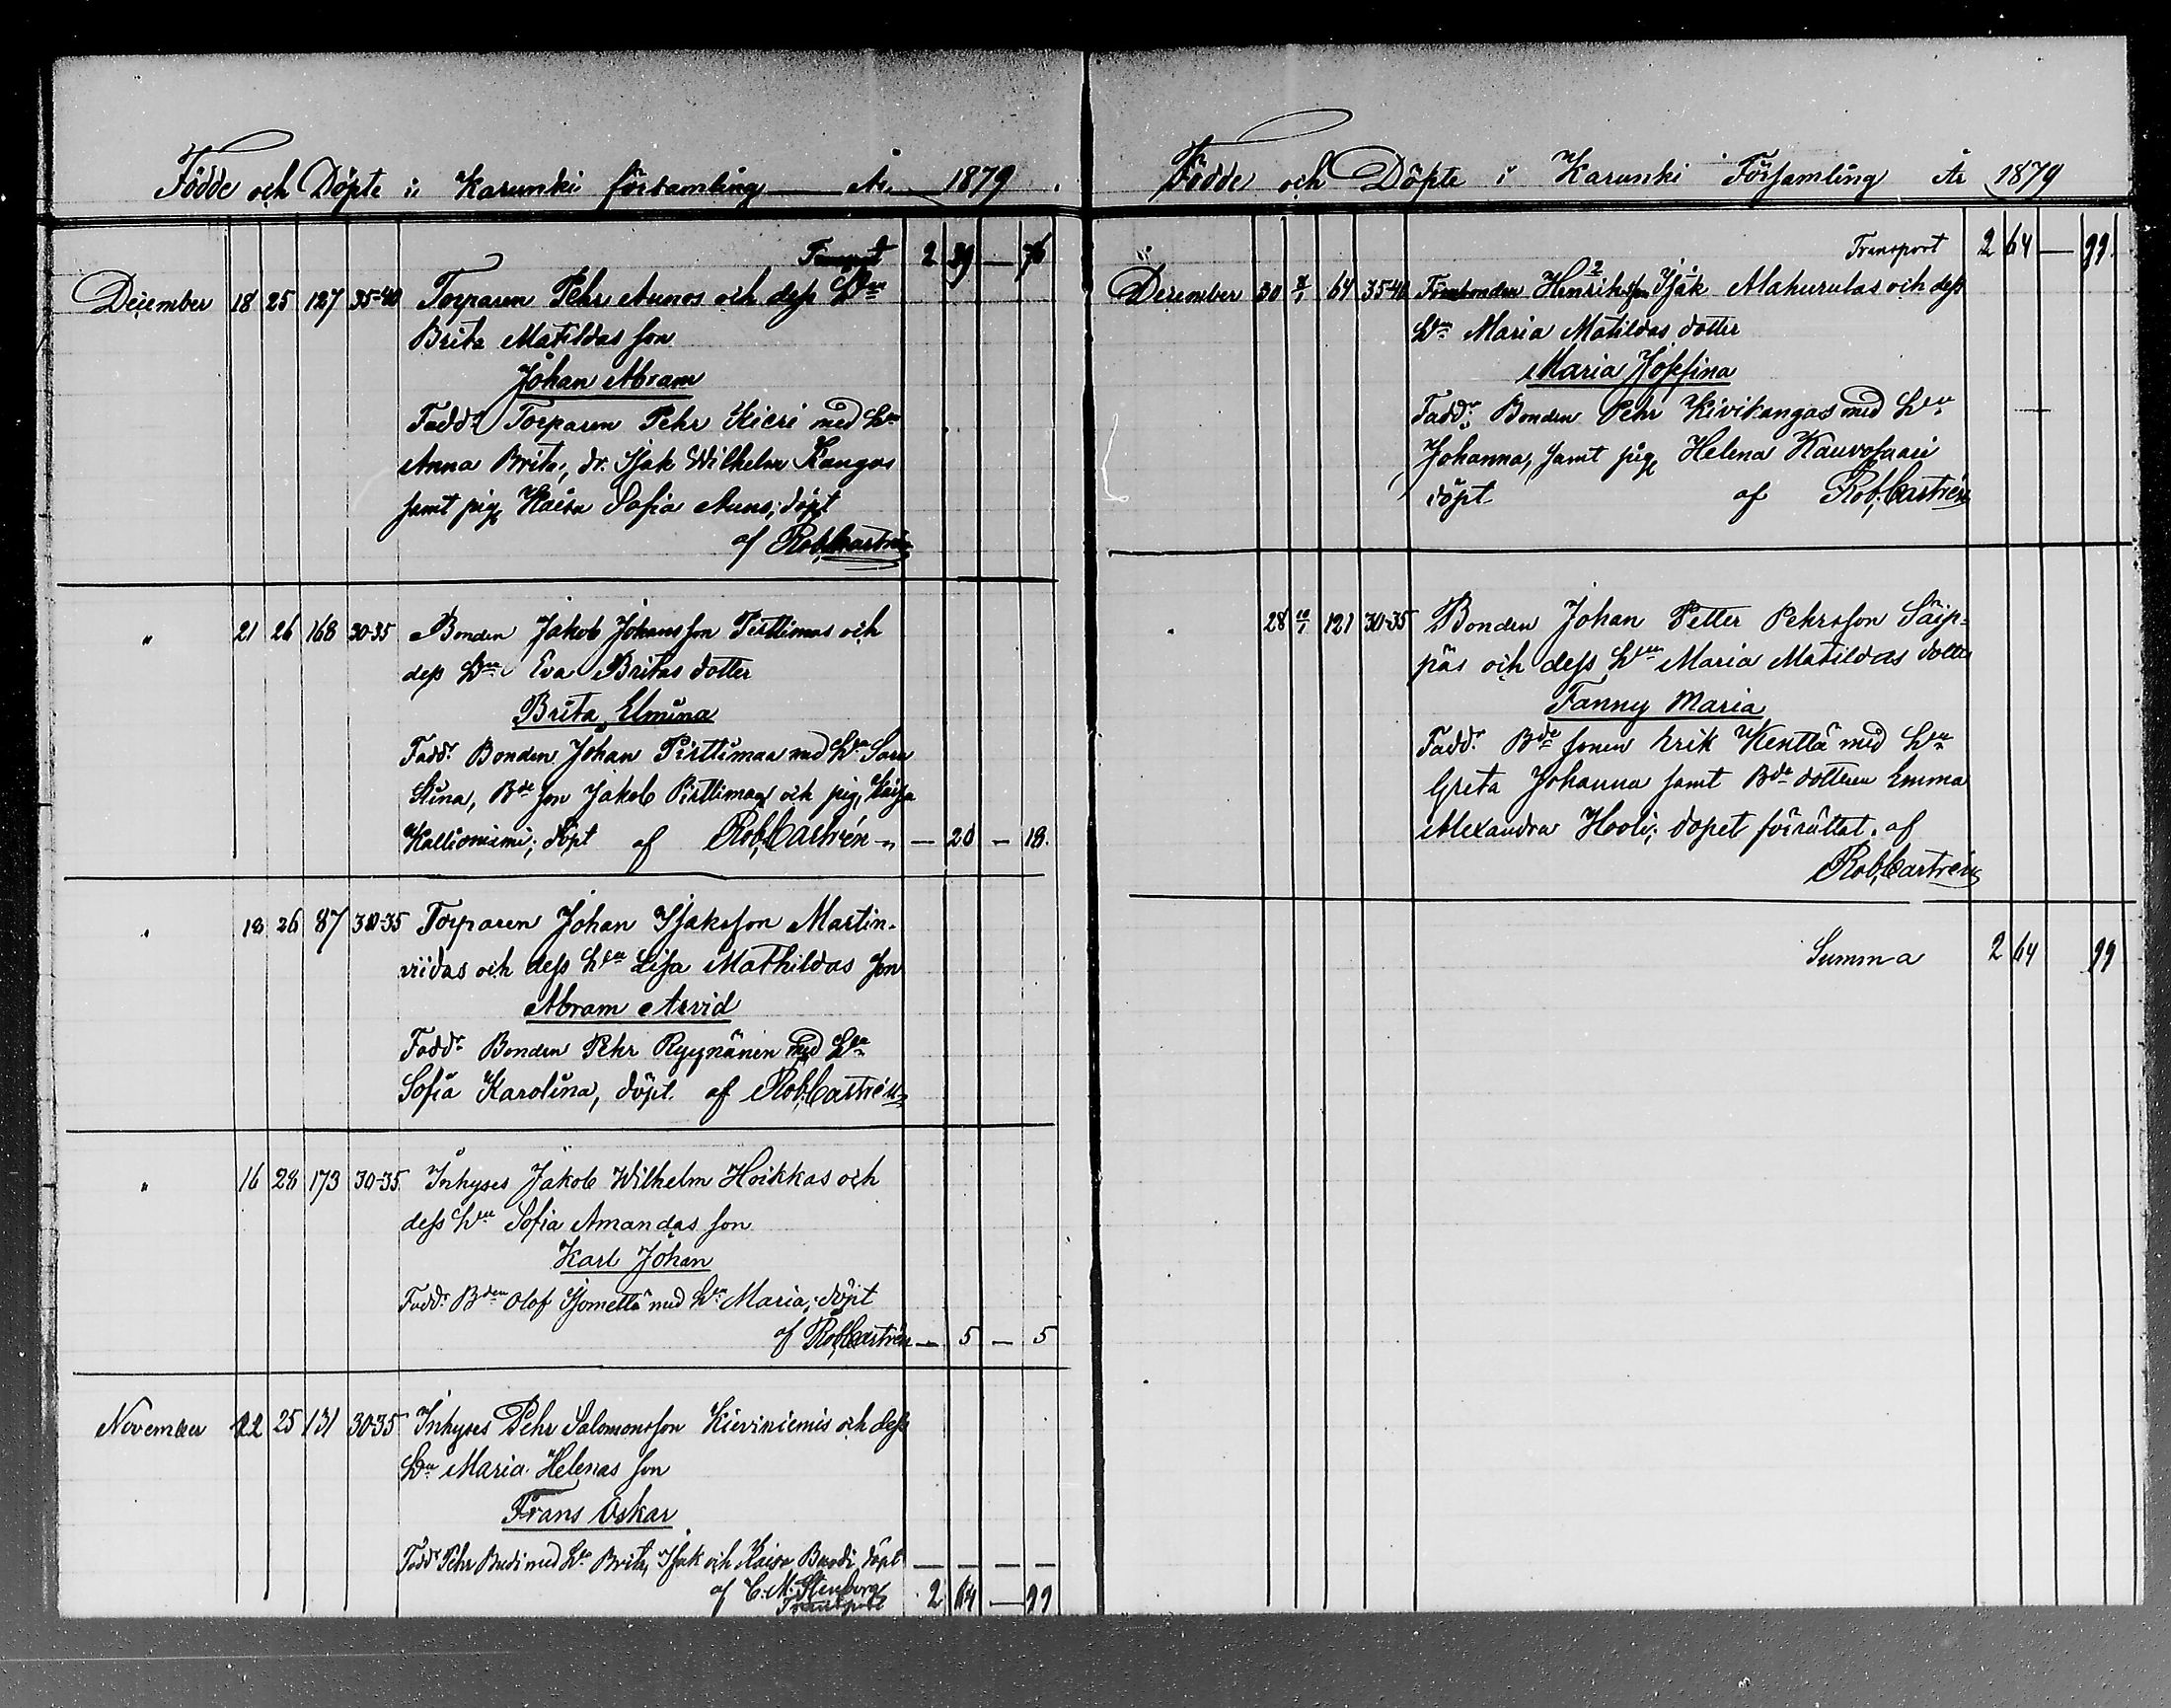 Födde och Döpte i Karunki församling År 1879.
Transport 2 39 — 76
December 18 25 127 35-40 Torparen Pehr Aunos och dess Hu
Brita Matildas son
Johan Abram
Fadd: Torparen Pehr Kieri med Hu
Anna Brita, dr. Isak Wilhelm Kangas
samt pig Kaisa Sofia Auno; döpt
af Rob. Castrén
" 21 26 168 30-35 Bonden Jakob Johansson Pirttimas och
dess Hu Eva Britas dotter
Brita Elmina
Fadd: Bonden Johan Pirttimaa med Hu Sara
Stina, Bde son Jakob Pirttimaa och pig Kaisa
Kallioniemi; döpt af Rob. Castrén — 20 — 18.
" 18 26 87 30-35 Torparen Johan Isaksson Martin-
viidas och dess Hu Lisa Mathildas son
Abram Arvid
Fadd: Bonden Pehr Ryynänen med Hu
Sofia Karolina, döpt af Rob. Castrén
" 16 28 173 30-35 Inhyses Jakob Wilhelm Hoikkas och
dess Hu Sofia Amandas son
Karl Johan
Fadd: Bden Olof med Hu Maria; döpt
af Rob. Castrén — 5 — 5
November 22 25 131 30-35 Inhyses Pehr Salomonsson Kieriniemis och dess
Hu Maria Helenas son
Frans Oskar
Fadd: Pehr med Hu Brita, Isak och Kaisa döpt — — — —
af C. M. Stenberg
Transport 2 64 — 99
Födde och Döpte i Karunki Församling År 1879
Transport 2 64 — 99.
December 30 2/1 64 35-40 Henriksson Isak Mahurulas och dess
Hu Maria Matildas dotter
Maria Josefina
Fadd: Bonden Pehr Kivikangas med Hu
Johanna, samt pig Helena Kauvosaari
döpt af Rob. Castrén
" 28 121 30-35 Bonden Johan Petter Pehrsson Säip-
päs och dess Hu Maria Matildas dotter
Fanny Maria
Fadd: Bde sonen Erik Kenttä med Hu
Greta Johanna samt Bde dottren Emma
Alexandra Hooli; dopet förrättat af
Rob. Castrén
Summa 2 64 99